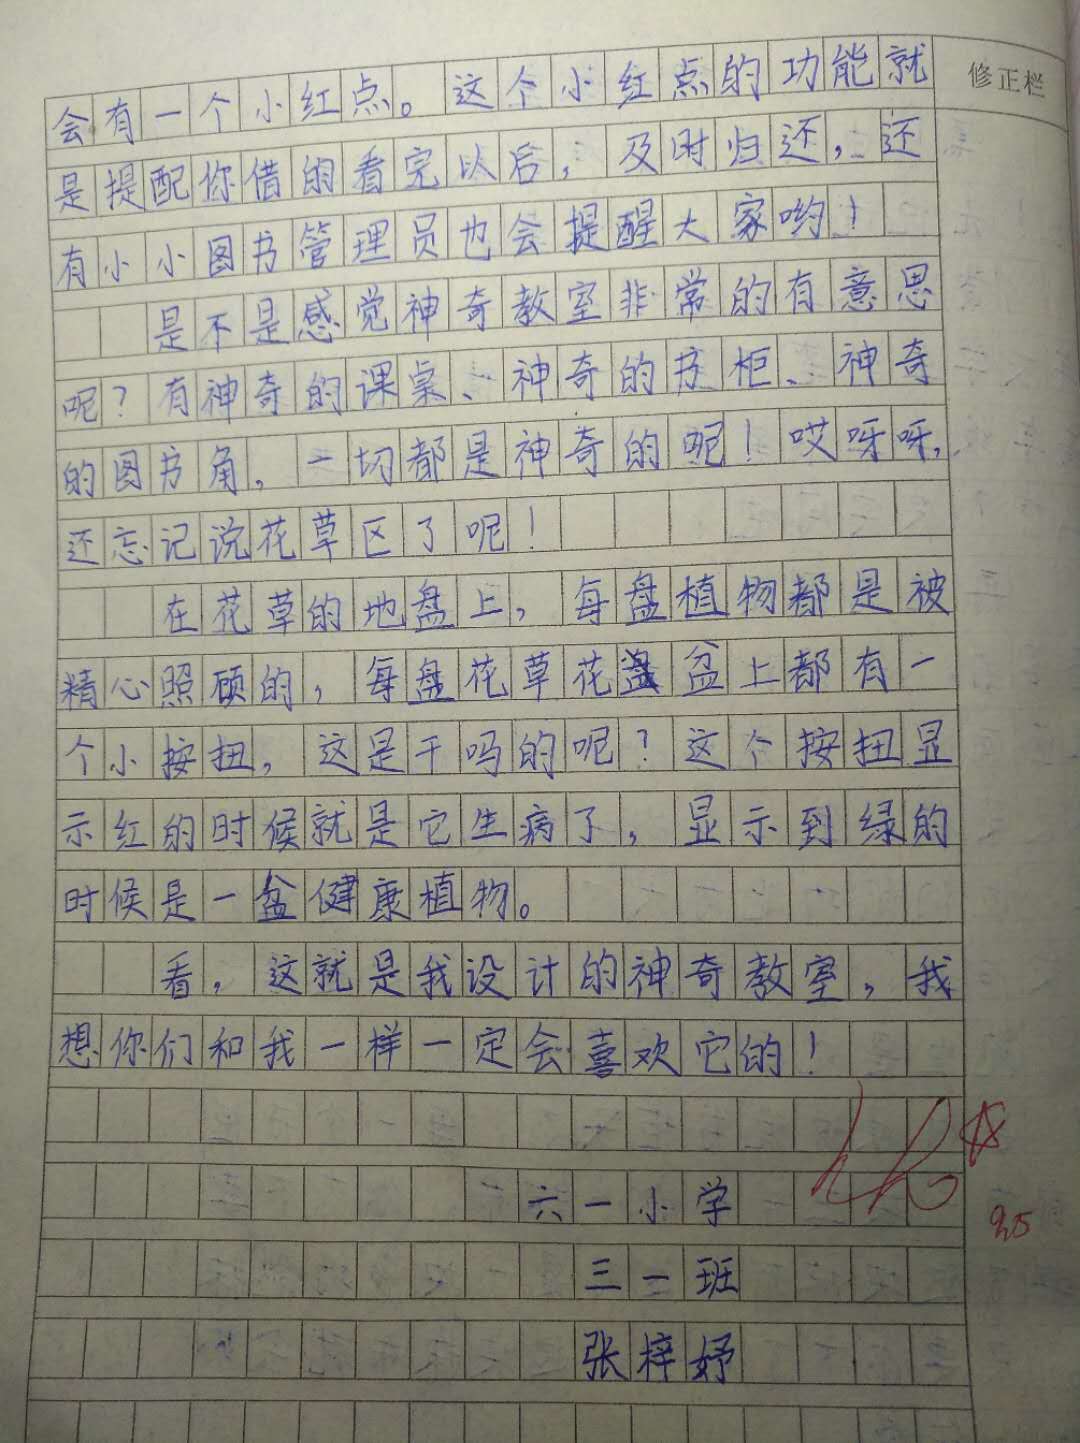 修正栏
会有一个小红点。这个小红点的功能就
是提配你借的看完以后，及时归还，还
有小小图书管理员也会提醒大家哟！
是不是感觉神奇教室非常的有意思
呢？有神奇的课桌、神奇的书柜、神奇
的图书角，一切都是神奇的呢！哎呀呀，
还忘记说花草区了呢！
在花草的地盘上，每盘植物都是被
精心照顾的，每盘花草花盆上都有一
个小按扭，这是干吗的呢？这个按扭显
示红的时候就是它生病了，显示到绿的
时候是一盆健康植物。
看，这就是我设计的神奇教室，我
想你们和我一样一定会喜欢它的！
六一小学
三一班
张梓妤